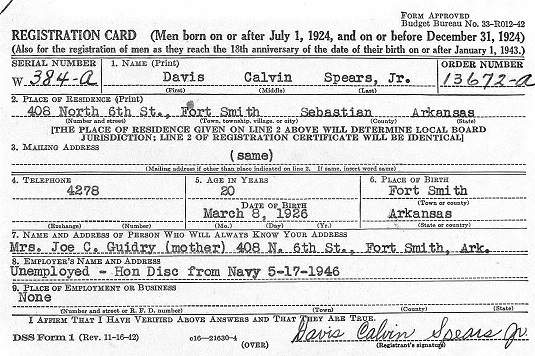 FORM APPROVED
Budget Bureau No. 33-R012-42
REGISTRATION CARD (Men born on or after July 1, 1924, and on or before December 31, 1924)
(Also for the registration of men as they reach the 18th anniversary of the date of their birth on or after January 1, 1943.)
SERIAL NUMBER 1. NAME (Print) ORDER NUMBER
W 384-a Davis Calvin Spears, Jr. 13672-a
(First) (Middle) (Last)
2. PLACE OF RESIDENCE (Print)
408 North 6th St., Fort Smith Sebastian Arkansas
(Number and street) (Town, township, village, or city) (County) (State)
[THE PLACE OF RESIDENCE GIVEN ON LINE 2 ABOVE WILL DETERMINE LOCAL BOARD
JURISDICTION; LINE 2 OF REGISTRATION CERTIFICATE WILL BE IDENTICAL]
3. MAILING ADDRESS
(same)
[Mailing address if other than place indicated on line 2. If same, insert word same]
4. TELEPHONE 5. AGE IN YEARS 6. PLACE OF BIRTH
4278 20 Fort Smith
DATE OF BIRTH (Town or county)
March 8, 1926 Arkansas
(Exchange) (Number) (Mo.) (Day) (Yr.) (State or country)
7. NAME AND ADDRESS OF PERSON WHO WILL ALWAYS KNOW YOUR ADDRESS
Mrs. Joe C. Guidry (mother) 408 N. 6th St., Fort Smith, Ark.
8. EMPLOYER'S NAME AND ADDRESS
Unemployed - Hon Disc from Navy 5-17-1946
9. PLACE OF EMPLOYMENT OR BUSINESS
None
(Number and street or R. F. D. number) (Town) (County) (State)
I AFFIRM THAT I HAVE VERIFIED ABOVE ANSWERS AND THAT THEY ARE TRUE.
Davis Calvin Spears Jr.
DSS Form 1 (Rev. 11-16-42) c16-21630-4 (Registrant's signature)
(OVER)